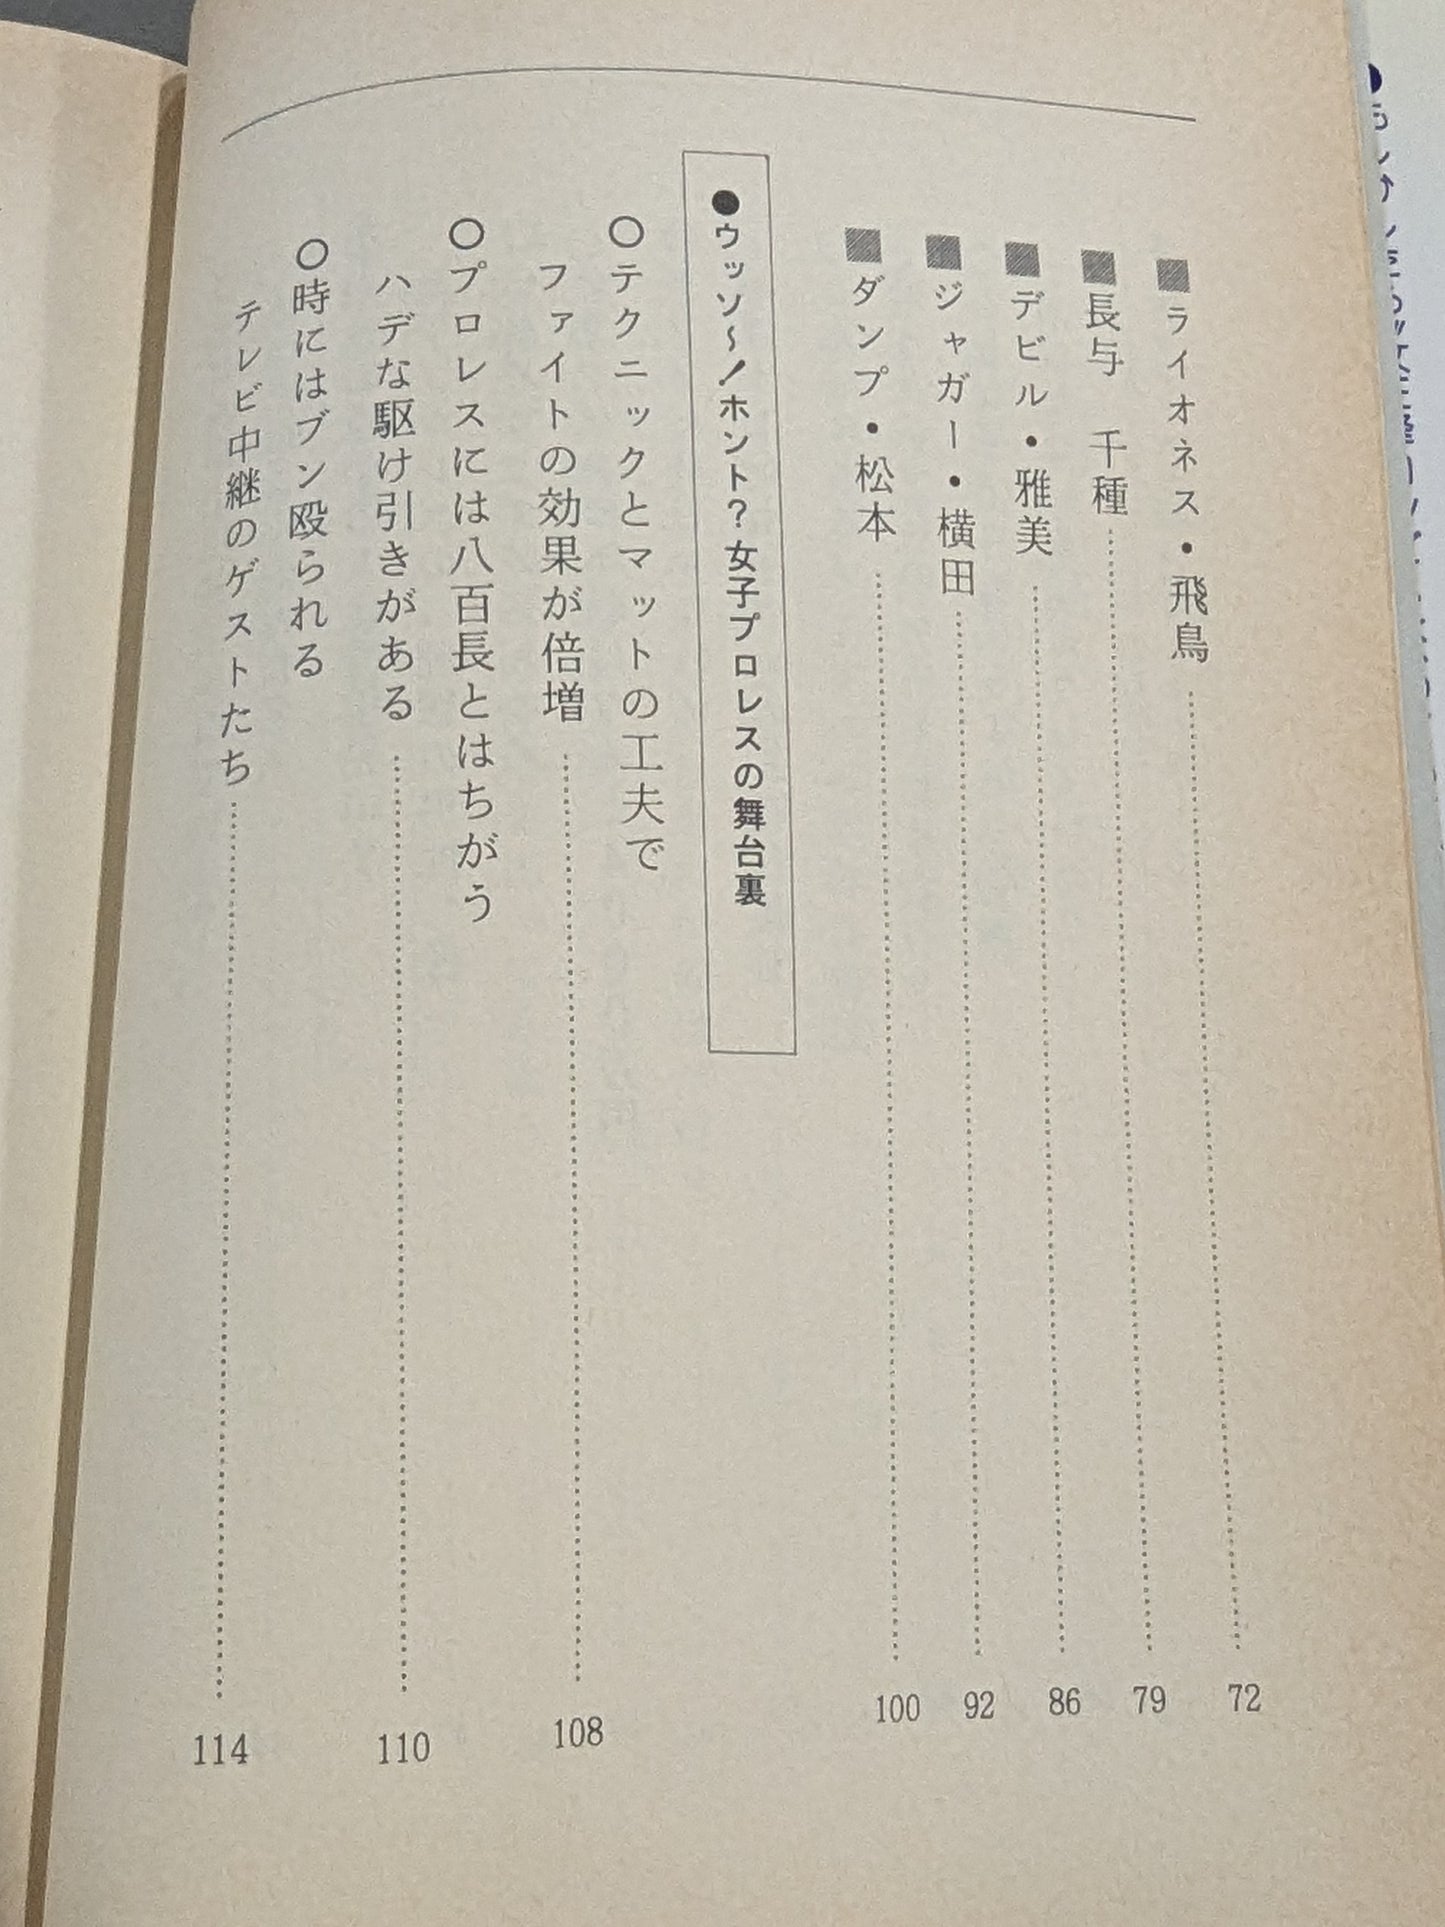 ■ライオネス・飛鳥……72
■長与 千種……79
■デビル・雅美……86
■ジャガー・横田……92
■ダンプ・松本……100
●ウッソ〜！ホント？女子プロレスの舞台裏
○テクニックとマットの工夫で
ファイトの効果が倍増……108
○プロレスには八百長とはちがう
ハデな駆け引きがある……110
○時にはブン殴られる
テレビ中継のゲストたち……114